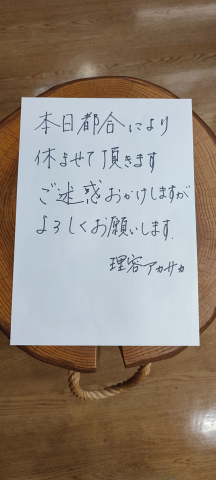 本日都合により
休ませて頂きます
ご迷惑おかけしますが
よろしくお願いします.
理容アカサカ